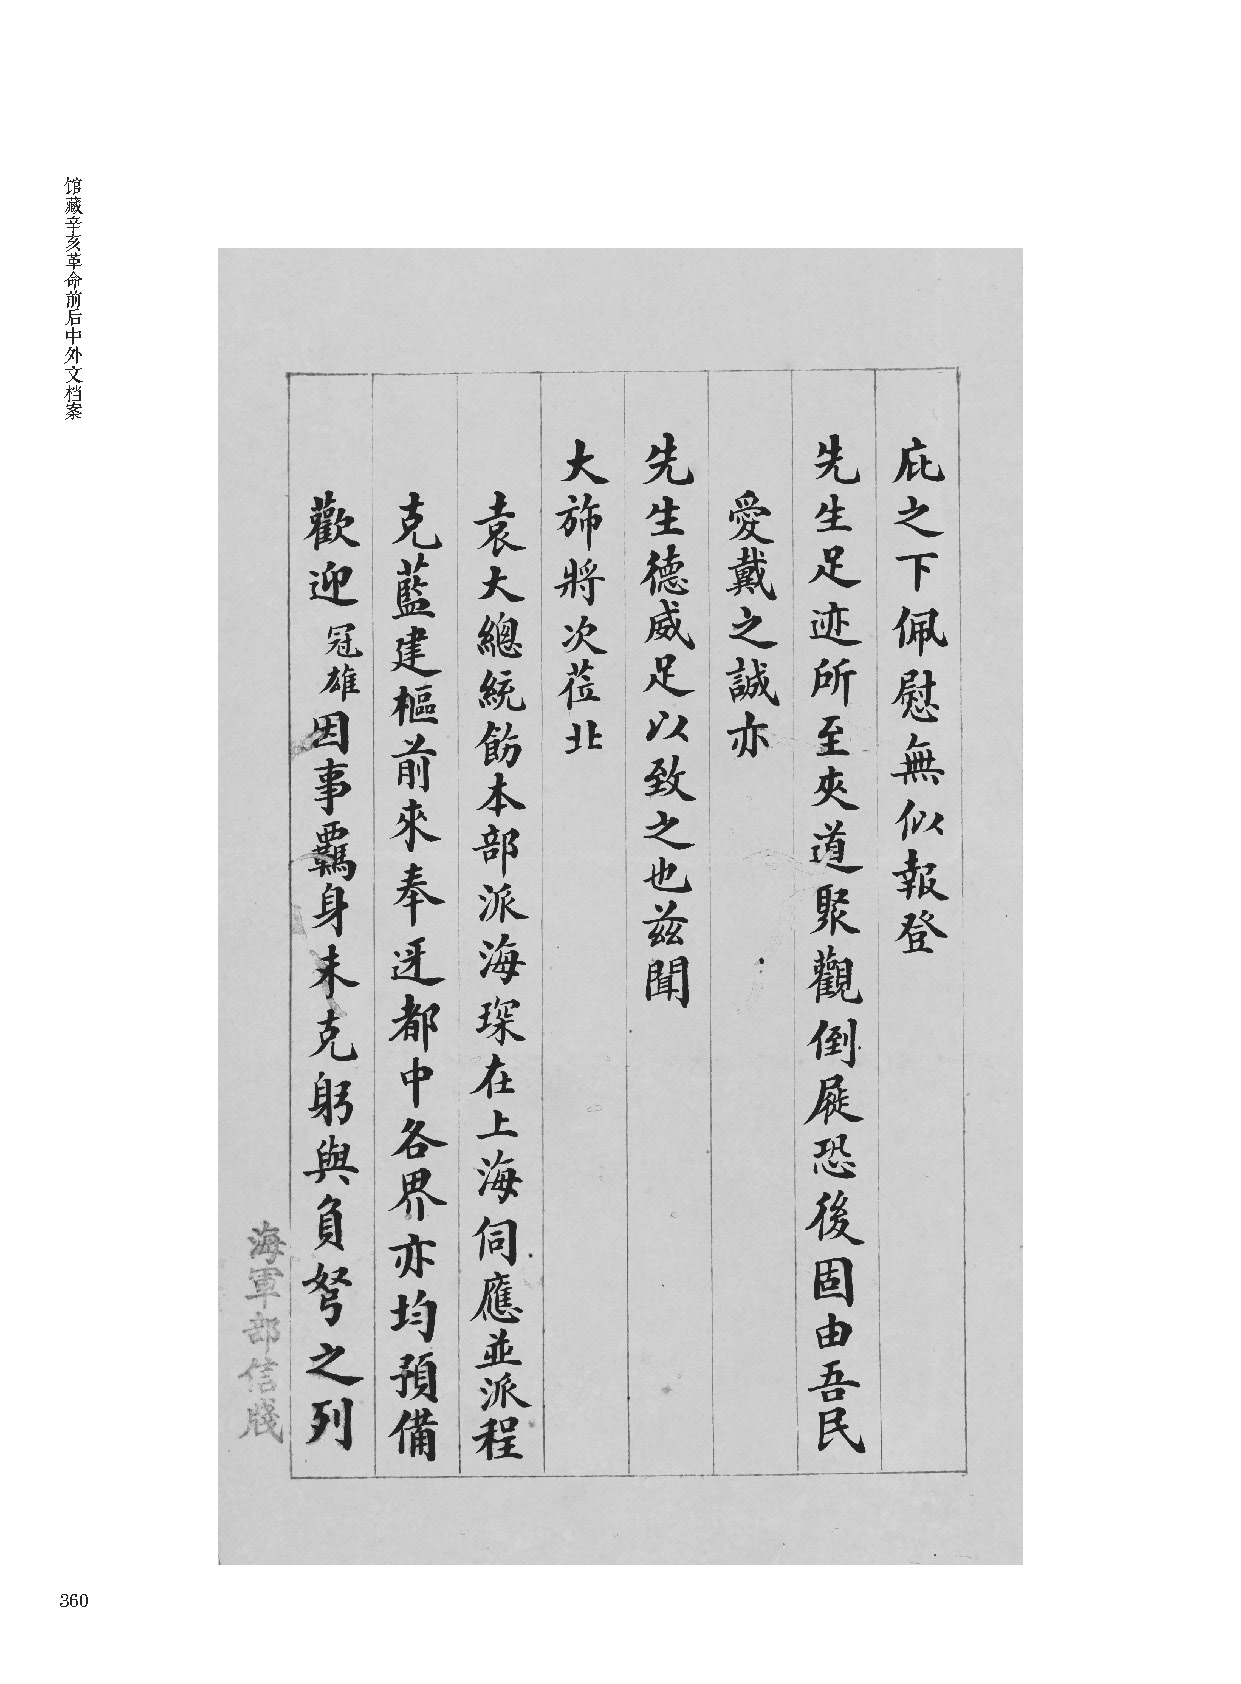 馆藏辛亥革命前后中外文档案
庇之下佩慰無似報登
先生足迹所至夾道聚觀倒屣恐後固由吾民
愛戴之誠亦
先生德威足以致之也茲聞
大斾將次莅北
袁大總統飭本部派海琛在上海伺應並派程
克藍建樞前來奉迓都中各界亦均預備
歡迎冠雄因事羈身未克躬與負弩之列
海軍部信牋
360